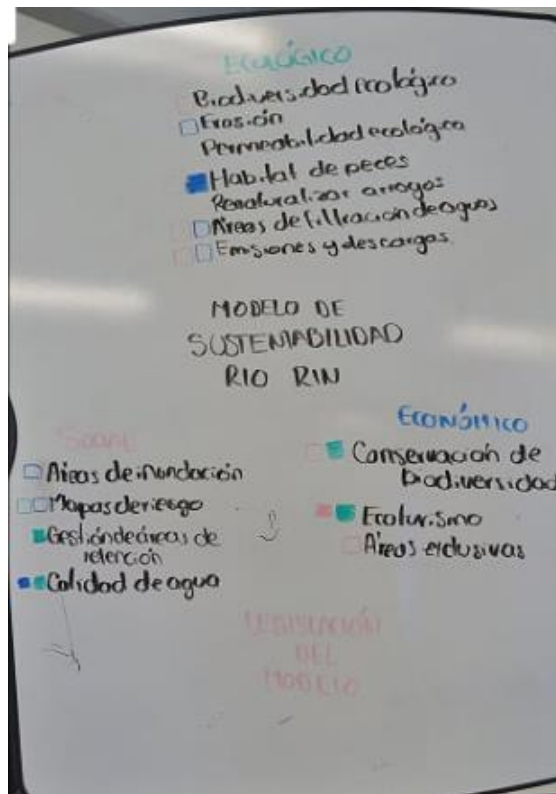 ECOLÓGICO
Biodiversidad ecológico
Erosión
Permeabilidad ecológica
Habitat de peces
Renaturalizar arroyos
Áreas de filtración de aguas
Emisiones y descargas
MODELO DE
SUSTENTABILIDAD
RIO RIN
Social
Áreas de inundación
Mapas de riesgo
Gestión de áreas de
retención
Calidad de agua
ECONÓMICO
Conservación de
biodiversidad
Ecoturismo
Áreas exclusivas
LEGISLACIÓN
DEL
MODELO